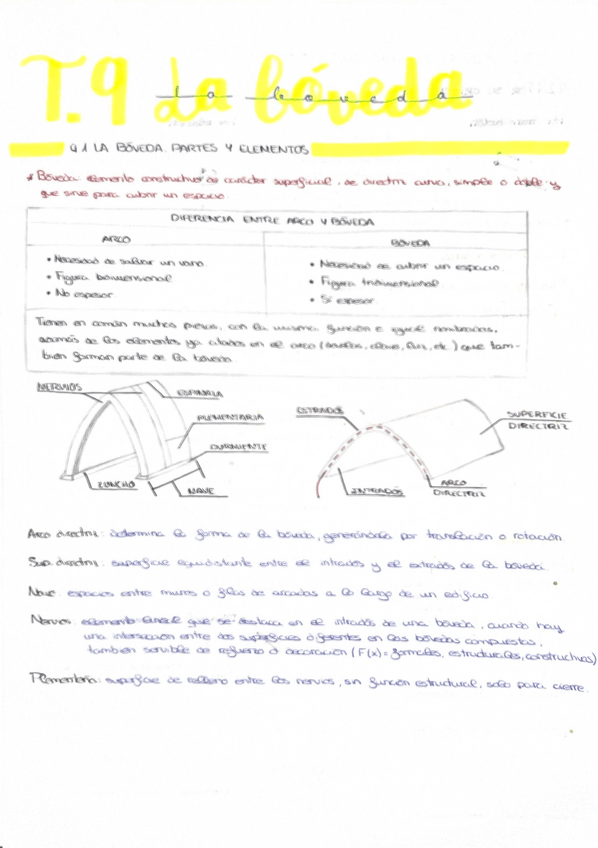 T.9 La bóveda
la bóveda
9.1 LA BÓVEDA. PARTES Y ELEMENTOS
* Bóveda: elemento constructivo de carácter superficial, de directriz curva, simple o doble y
que sirve para cubrir un espacio.
DIFERENCIA ENTRE ARCO Y BÓVEDA
ARCO
• Necesidad de salvar un vano
• Figura bidimensional
• No espesor
BÓVEDA
• Necesidad de cubrir un espacio
• Figura tridimensional
• Sí espesor
Tienen en común muchas piezas, con la misma función e igual nombradas,
además de los elementos ya citados en el arco (dovelas, clave, luz, etc.) que tam-
bién forman parte de la bóveda.
NERVIOS
ESPINAZIA
PLEMENTARIA
DURMIENTE
ZUNCHO
NAVE
EXTRADÓS
SUPERFICIE
DIRECTRIZ
INTRADÓS
ARCO
DIRECTRIZ
Arco directriz: determina la forma de la bóveda, generándola por translación o rotación.
Sup. directriz: superficie equidistante entre el intradós y el extradós de la bóveda.
Nave: espacios entre muros o filas de arcadas a lo largo de un edificio.
Nervios: elemento lineal que se destaca en el intradós de una bóveda, cuando hay
una intersección entre dos superficies diferentes en las bóvedas compuestas,
también sensible de refuerzo o decoración (F(x)= formales, estructurales, constructivas)
Plementería: superficie de relleno entre los nervios, sin función estructural, solo para cierre.